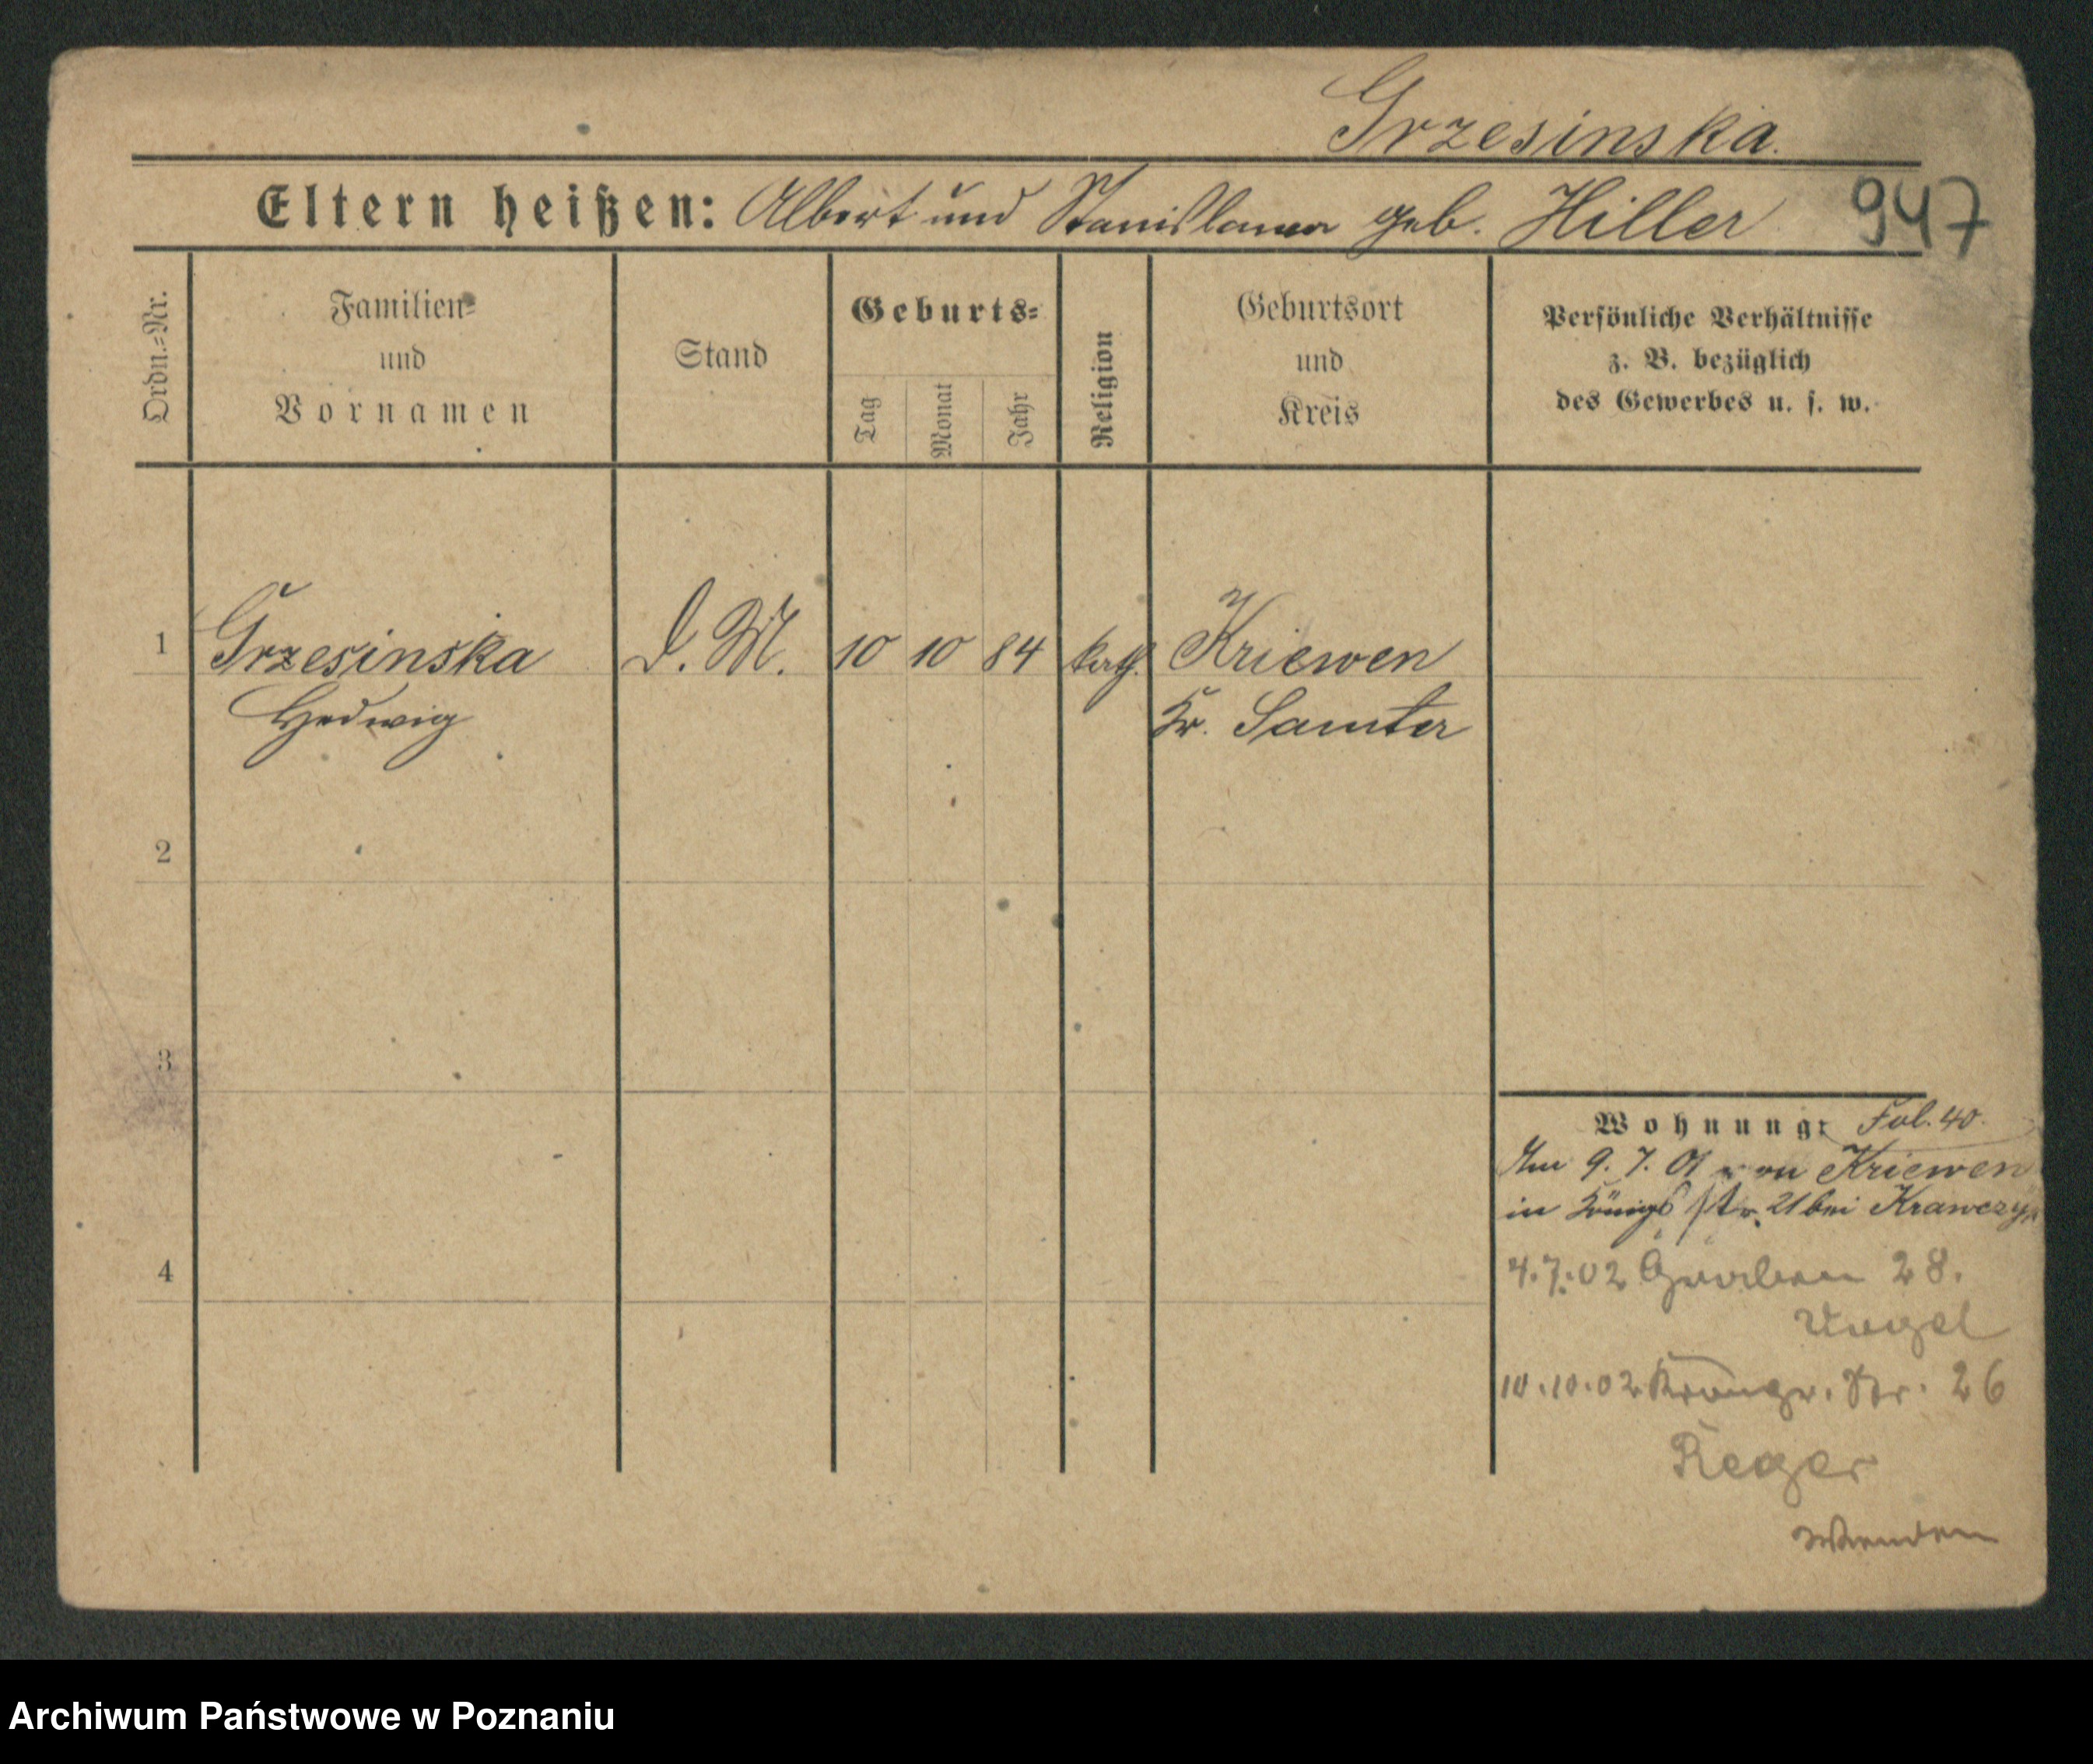 Grzesinska.
Eltern heißen: Albert und Stanislawa geb. Hiller
947
Ordn.-Nr.
Familien-
und
Vornamen
Stand
Geburts-
Tag
Monat
Jahr
Religion
Geburtsort
und
Kreis
Persönliche Verhältnisse
z. B. bezüglich
des Gewerbes u. s. w.
1 Grzesinska D. M. 10 10 84 kath. Kriewen
Hedwig Kr. Samter
2
3
4
Wohnung: Fol. 40.
Am 9. 7. 01 von Kriewen
in Königsstr. 21 bei
4.7.02 Graben 28.
Vogel
10.10.02 Str. 26
Reger
Wenden
Archiwum Państwowe w Poznaniu